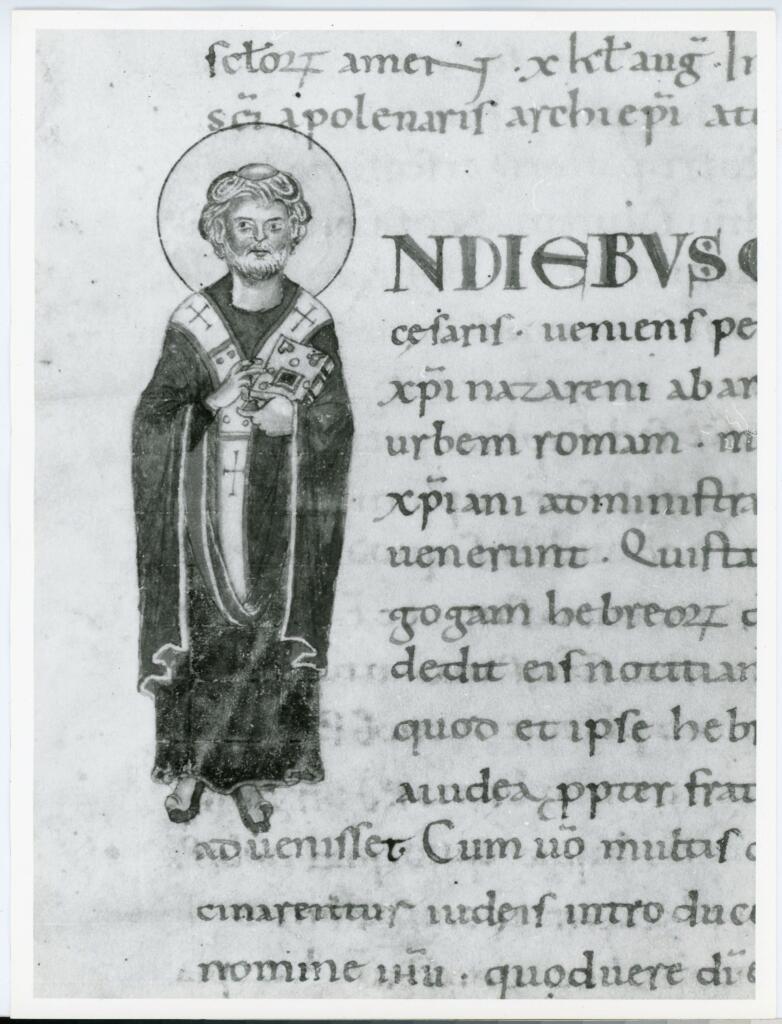 sc̄torꝝ amen · x kl̄ aug̃ · In
sc̄i apolenaris archiep̄i at
NDIEBVS C
cesaris · ueniens pe
xp̄i nazareni ab an
urbem romam · m
xp̄iani administra
uenerunt · Quista
gogam hebreorꝝ
dedit eis notitiam
quod et ipse heb
a iudea ꝓpter frat
aduenisset Cum uō multis
cinarentur iudeis intro duce
nomine ih̄u · quod uere dī